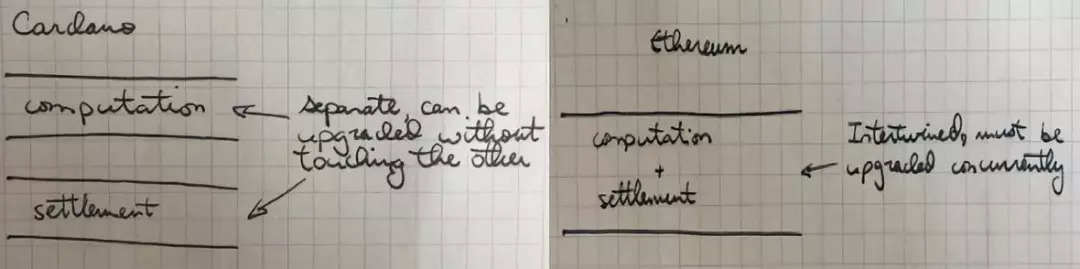 Cardano
computation
separate, can be
upgraded without
touching the other
settlement
Ethereum
computation
+
settlement
Intertwined, must be
upgraded concurrently